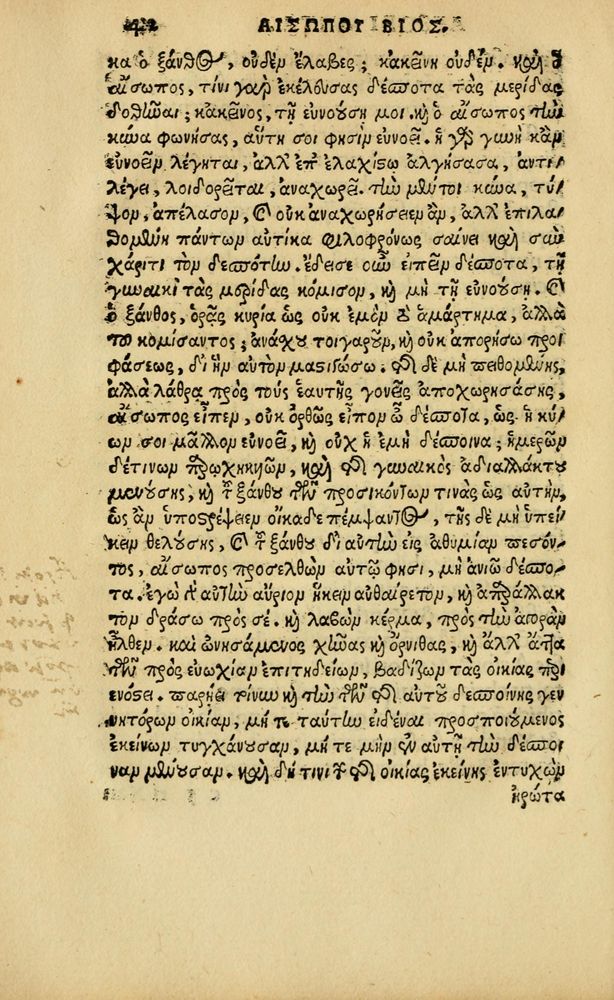 42 ΑΙΣΩΠΟΥ ΒΙΟΣ.
κα ὁ ξάνθος, οὐδὲν ἔλαβες; κακείνη οὐδέν. καὶ ὁ
αἴσωπος, τίνι γαρ ἐκέλευσας δέσποτα τὰς μερίδας
δοθῆναι; κακεῖνος, τῇ εὐνούσῃ μοι. καὶ ὁ αἴσωπος τὴν
κύνα φωνήσας, αὕτη σοι φησὶν εὐνοεῖ. ἡ γὰρ γυνὴ κἂν
εὐνοεῖν λέγηται, ἀλλ' ἐπ' ἐλαχίστῳ ἀλγήσασα, ἀντι-
λέγει, λοιδορεῖται, ἀναχωρεῖ. τὴν μέντοι κύνα, τύ-
ψον, ἀπέλασον, καὶ οὐκ ἀναχωρήσειεν ἂν, ἀλλ' ἐπιλα-
θομένη πάντων αὐτίκα φιλοφρόνως σαίνει καὶ σὺν
χάριτι τὸν δεσπότην. ἔδει σε οὖν εἰπεῖν δέσποτα, τῇ
γυναικὶ τὰς μερίδας κόμισον, καὶ μὴ τῇ εὐνούσῃ. καὶ
ὁ ξάνθος, ὁρᾷς κυρία ὡς οὐκ ἐμὸν τὸ ἁμάρτημα, ἀλλὰ
τοῦ κομίσαντος; ἀνάχου τοιγαροῦν, καὶ οὐκ ἀπορήσω προ-
φάσεως, δι' ἣν αὐτὸν μαστιγώσω. τῆς δὲ μὴ πειθομένης,
ἀλλὰ λάθρα πρὸς τοὺς ἑαυτῆς γονεῖς ἀποχωρησάσης,
αἴσωπος εἶπεν, οὐκ ὀρθῶς εἶπον ὦ δέσποτα, ὡς ἡ κύ-
ων σοι μᾶλλον εὐνοεῖ, καὶ οὐχ ἡ ἐμὴ δέσποινα; ἡμερῶν
δέ τινων παρῳχηκυιῶν, καὶ τῆς γυναικὸς ἀδιαλλάκτου
μενούσης, καὶ τοῦ ξάνθου τῶν προσηκόντων τινὰς ὡς αὐτὴν,
ὡς ἂν ὑποστρέψειεν οἴκαδε πέμψαντος, τῆς δὲ μὴ ὑπεί-
κειν θελούσης, καὶ τοῦ ξάνθου δι' αὐτὴν εἰς ἀθυμίαν πεσόν-
τος, αἴσωπος προσελθὼν αὐτῷ φησι, μὴ ἀνιῶ δέσπο-
τα. ἐγὼ γὰρ αὐτὴν αὔριον ἥκειν αὐθαίρετον, καὶ ἀπαράλλακ-
τον δράσω πρός σε. καὶ λαβὼν κέρμα, πρὸς τὴν ἀγορὰν
ἦλθεν. καὶ ὠνησάμενος χῆνας καὶ ὄρνιθας, καὶ ἄλλ' ἄττα
τῶν πρὸς εὐωχίαν ἐπιτηδείων, βαδίζων τὰς οἰκίας περι-
ενόστει. παρῄει τοίνυν καὶ τὴν τῶν τῆς αὐτοῦ δεσποίνης γεν-
νητόρων οἰκίαν, μή τε ταύτην εἰδέναι προσποιούμενος
ἐκείνων τυγχάνουσαν, μή τε μὴν ἐν αὐτῇ τὴν δέσποι-
ναν μένουσαν. καὶ δή τινι τῶν τῆς οἰκίας ἐκείνης ἐντυχὼν
ἠρώτα